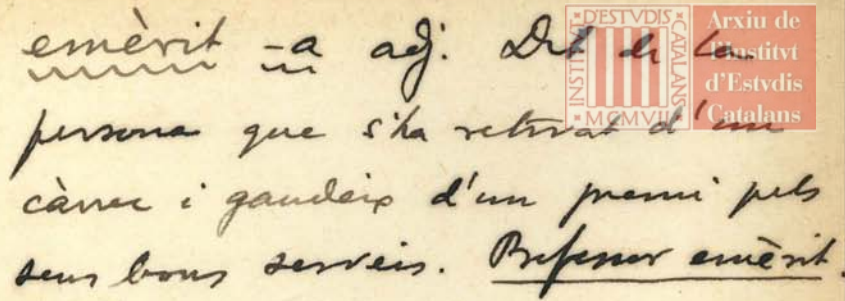 emèrit -a adj. Dit de la
persona que s'ha retirat d'un
càrrec i gaudeix d'un premi pels
seus bons serveis. Professor emèrit.
INSTITVT D'ESTVDIS CATALANS
MCMVII
Arxiu de
l'Institvt
d'Estvdis
Catalans